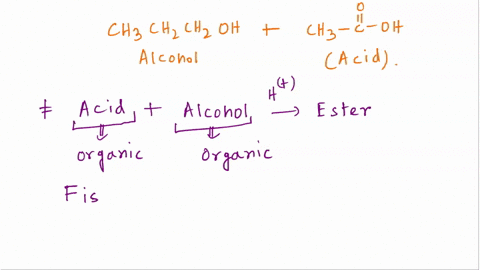 CH3 CH2 CH2 OH + CH3-C-OH
O
Alcohol (Acid).
≠ Acid + Alcohol H(+) → Ester
organic organic
Fis